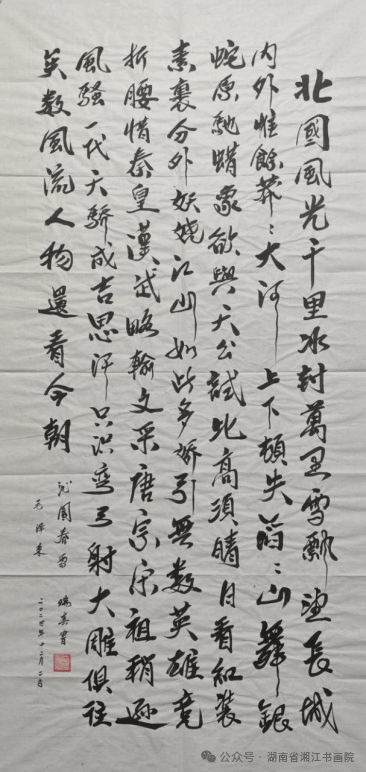 北國風光千里冰封萬里雪飄望長城
内外惟餘莽〻大河上下頓失滔〻山舞銀
蛇原馳蜡象欲與天公試比高須晴日看紅装
素裹分外妖嬈江山如此多嬌引無数英雄竞
折腰惜秦皇漢武略輸文采唐宗宋祖稍遜
風騷一代天驕成吉思汗只识弯弓射大雕俱往
矣数風流人物還看今朝
沁園春雪
毛澤東
二〇二四年十二月二日
公众号·湖南省湘江书画院